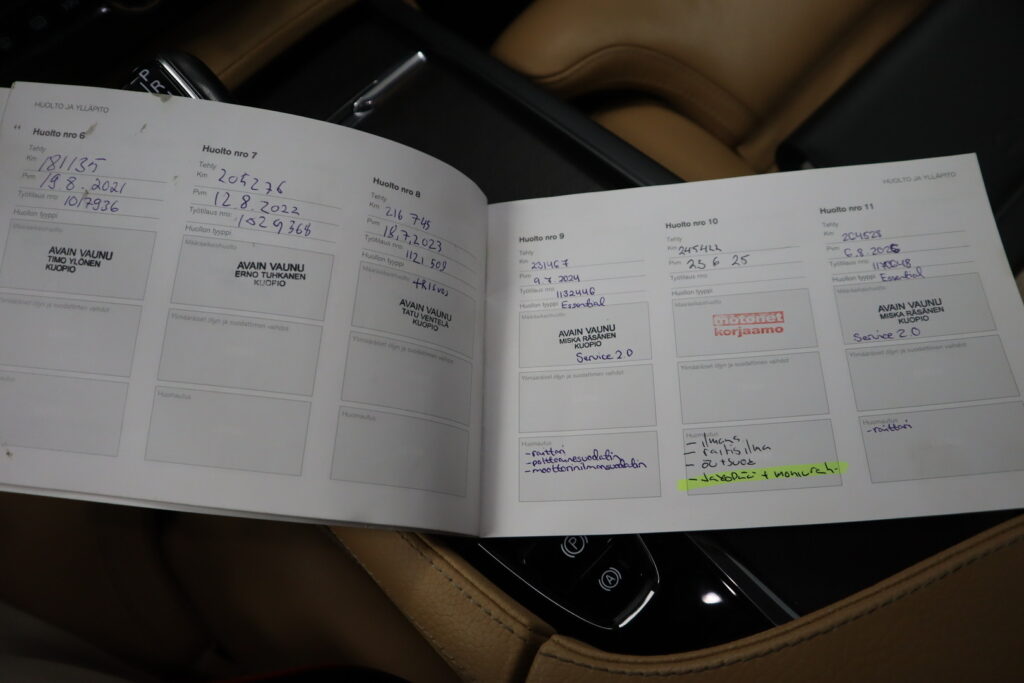 HUOLTO JA YLLÄPITO
Huolto nro 6
Tehty
Km 181135
Pvm 19.8.2021
Työtilaus nro 1017936
Huollon tyyppi
AVAIN VAUNU
TIMO YLÖNEN
KUOPIO
Huolto nro 7
Tehty
Km 205276
Pvm 12.8.2022
Työtilaus nro 1029368
Huollon tyyppi
Määräaikaishuolto
AVAIN VAUNU
ERNO TUHKANEN
KUOPIO
Ylimääräiset öljyn ja suodattimen vaihdot
Huomautus
Huolto nro 8
Tehty
Km 216 745
Pvm 18.7.2023
Työtilaus nro 1121 508
Huollon tyyppi
Määräaikaishuolto
AVAIN VAUNU
TATU VENTELÄ
KUOPIO
Ylimääräiset öljyn ja suodattimen vaihdot
Huomautus
HUOLTO JA YLLÄPITO
Huolto nro 9
Tehty
Km 231467
Pvm 9.7.2024
Työtilaus nro 1132446
Huollon tyyppi Essential
Määräaikaishuolto
AVAIN VAUNU
MISKA RÄSÄNEN
KUOPIO
Service 2.0
Ylimääräiset öljyn ja suodattimen vaihdot
Huomautus
- raittari
- polttoainesuodatin
- moottorinilmansuodatin
Huolto nro 10
Tehty
Km 245422
Pvm 23 6 25
Työtilaus nro
Huollon tyyppi
Määräaikaishuolto
motonet
korjaamo
Ylimääräiset öljyn ja suodattimen vaihdot
Huomautus
- ilmans
- raitisilma
- öl + suod
Huolto nro 11
Tehty
Km
Pvm 6.8.2026
Työtilaus nro
Huollon tyyppi Essential
Määräaikaishuolto
AVAIN VAUNU
MISKA RÄSÄNEN
KUOPIO
Service 2.0
Ylimääräiset öljyn ja suodattimen vaihdot
Huomautus
- raittari
P
R
P
A